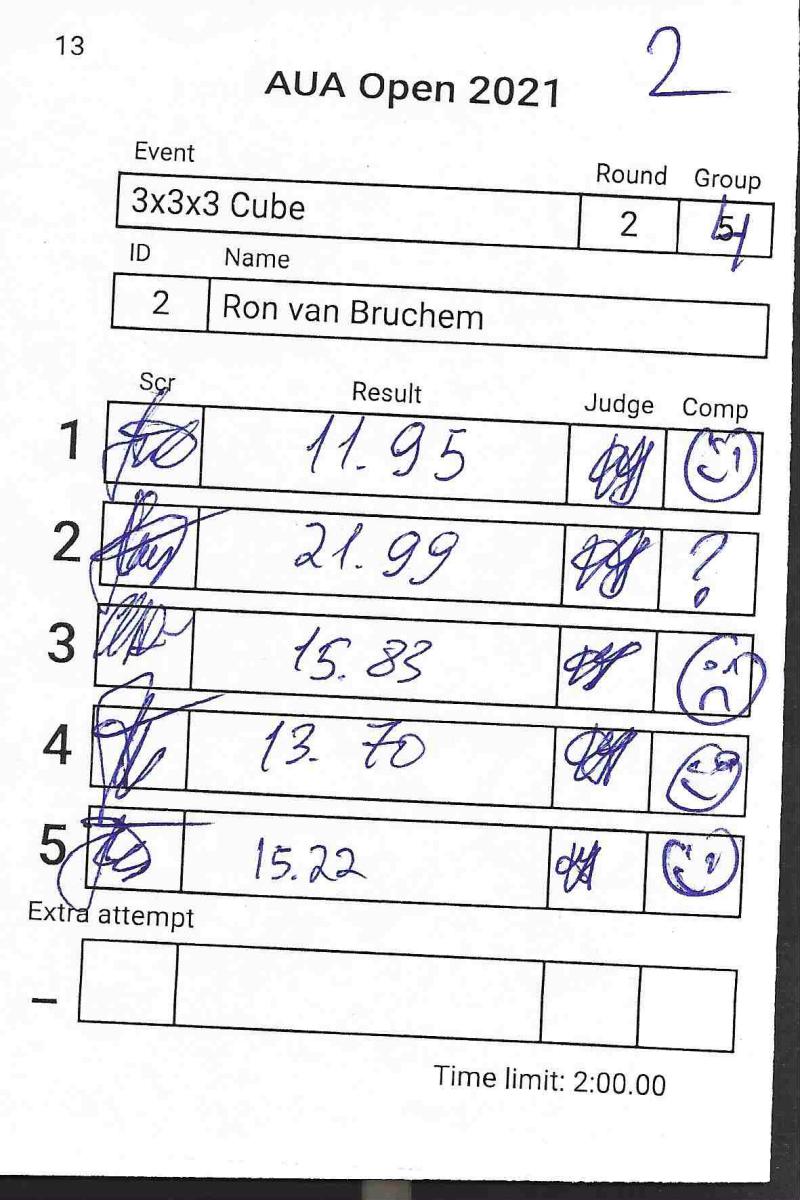 13
2
AUA Open 2021
Event
Round Group
3x3x3 Cube 2 4
ID Name
2 Ron van Bruchem
Scr Result Judge Comp
1 11.95
2 21.99 ?
3 15.83
4 13.70
5 15.22
Extra attempt
_
Time limit: 2:00.00